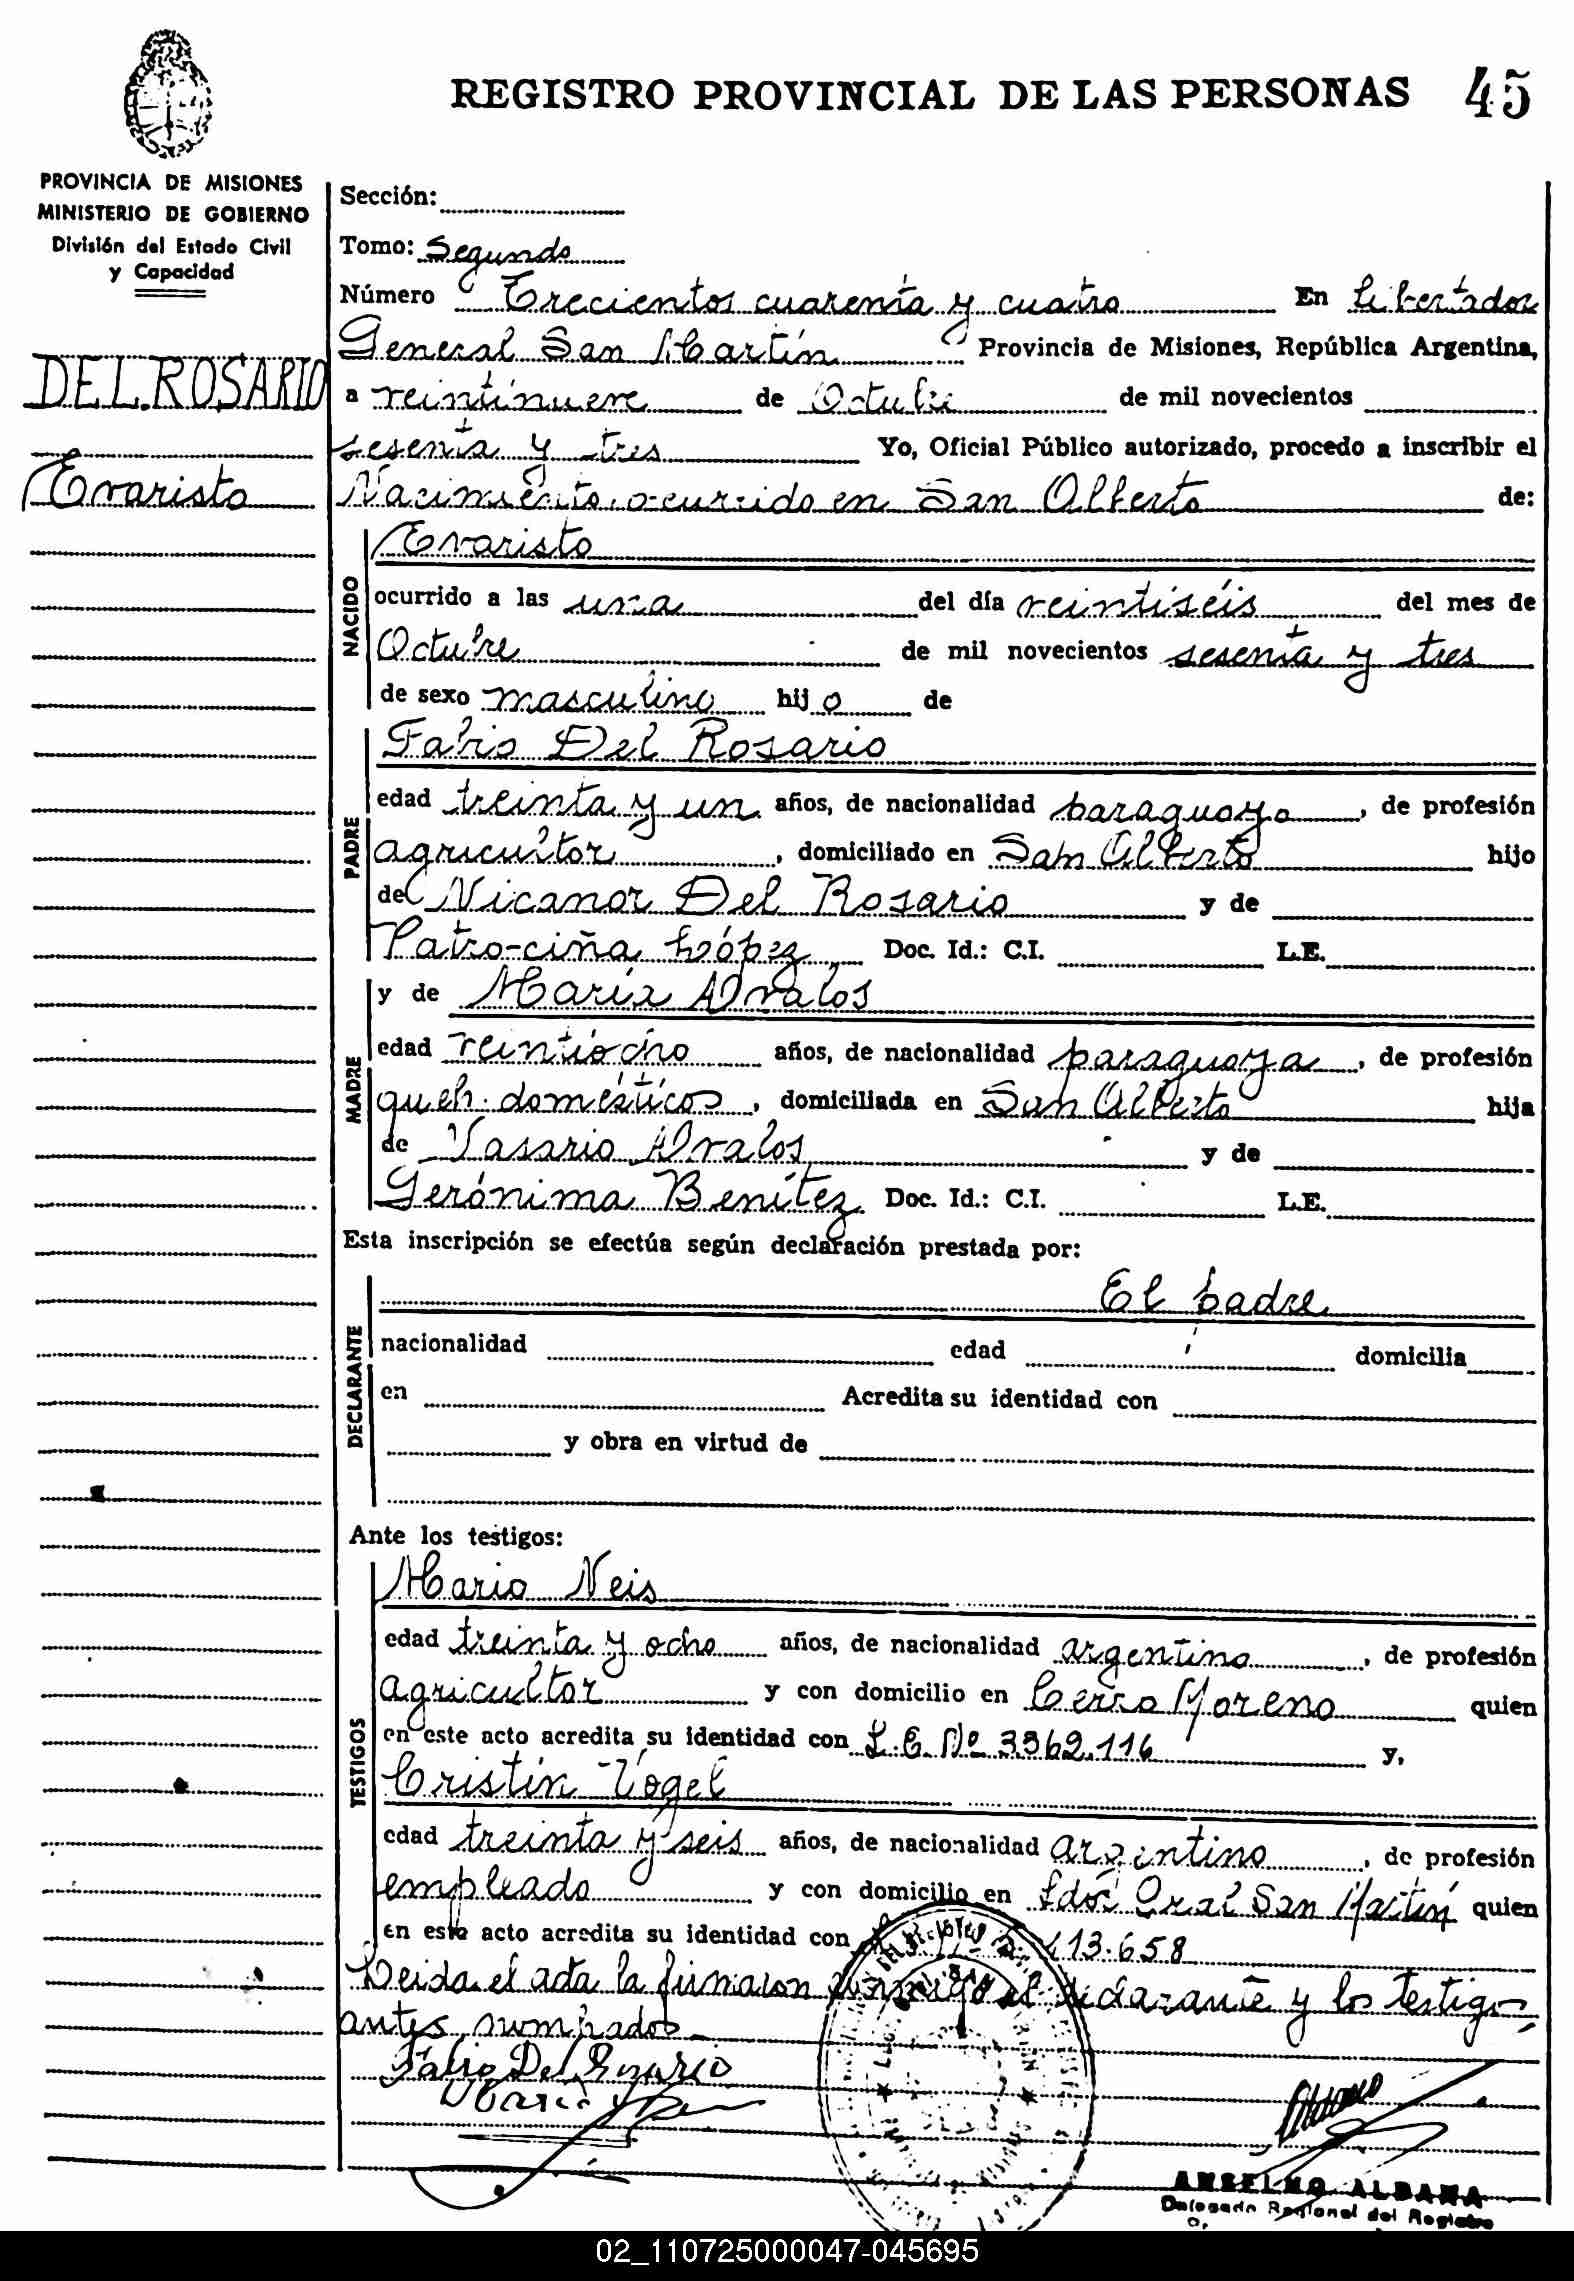 REGISTRO PROVINCIAL DE LAS PERSONAS 45
PROVINCIA DE MISIONES
MINISTERIO DE GOBIERNO
División del Estado Civil
y Capacidad
DEL ROSARIO
Evaristo
Sección:
Tomo: Segundo
Número Trecientos cuarenta y cuatro En Libertador
General San Martín Provincia de Misiones, República Argentina,
a veintinueve de Octubre de mil novecientos
sesenta y tres Yo, Oficial Público autorizado, procedo a inscribir el
Nacimiento ocurrido en San Alberto de:
NACIDO
Evaristo
ocurrido a las una del día veintiséis del mes de
Octubre de mil novecientos sesenta y tres
de sexo masculino hij o de
PADRE
Fabio Del Rosario
edad treinta y un años, de nacionalidad paraguayo, de profesión
agricultor, domiciliado en San Alberto hijo
de Nicanor Del Rosario y de
Patro-ciña López Doc. Id.: C.I. L.E.
MADRE
y de María Avalos
edad veintiocho años, de nacionalidad paraguaya, de profesión
queh. domésticos, domiciliada en San Alberto hija
de Vasario Avalos y de
Gerónima Benítez Doc. Id.: C.I. L.E.
Esta inscripción se efectúa según declaración prestada por:
DECLARANTE
El padre
nacionalidad edad domicilia
en Acredita su identidad con
y obra en virtud de
Ante los testigos:
TESTIGOS
Mario Neis
edad treinta y ocho años, de nacionalidad argentino, de profesión
agricultor y con domicilio en Cerro Moreno quien
en este acto acredita su identidad con L.E. Nº 3362.116 y,
Cristín Vogel
edad treinta y seis años, de nacionalidad argentino, de profesión
empleado y con domicilio en Ldor Gral San Martín quien
en este acto acredita su identidad con 413.658
Leida el acta la firmaron conmigo el declarante y los testigos
antes nombrados
Fabio Del Rosario
ANSELMO ALDANA
Delegado Regional del Registro
02_110725000047-045695